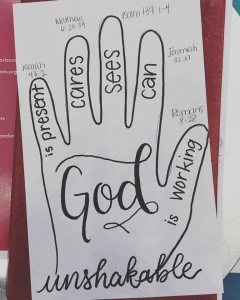 Isaiah
43:2
is present
Matthew
6:25-34
cares
Psalm 139:1-4
sees
Jeremiah
32:27
can
Romans
8:28
is working
God
unshakable